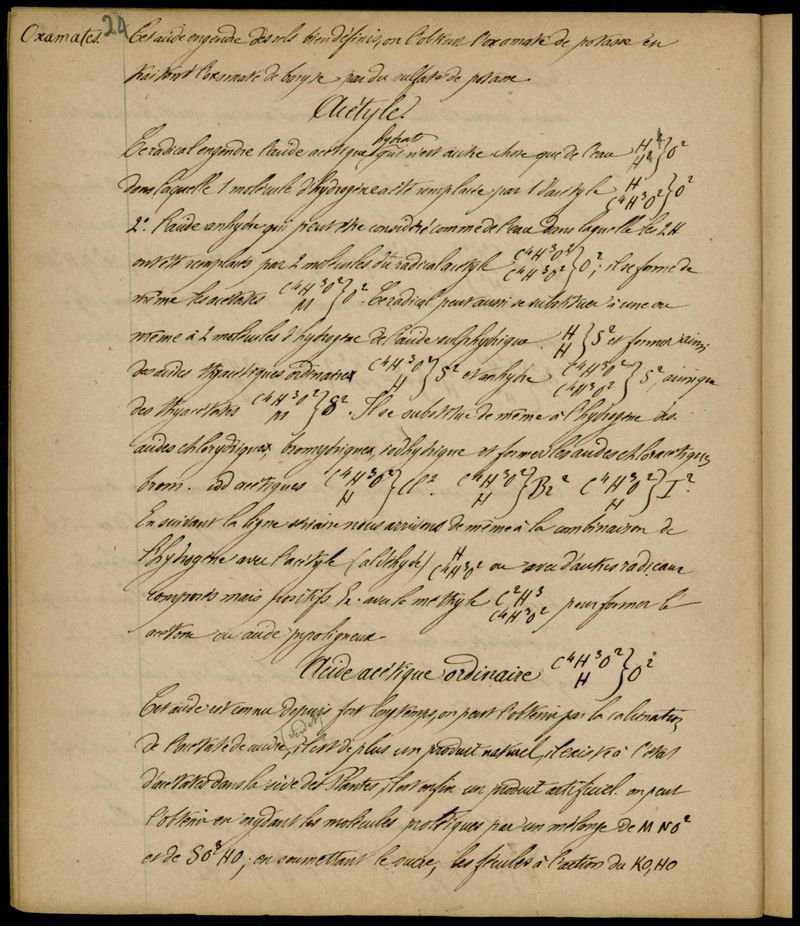 Oxamates. 24 Cet acide engendre des sels bien définis, on l'obtient l'oxamate de potasse en
traitant l'oxamate de baryte par du sulfate de potasse
Acétyle.
Ce radical engendre l'acide acétique hydraté qui n'est autre chose que de l'eau H H } O²
dans laquelle 1 molécule d'hydrogène a été remplacée par 1 d'acétyle H C⁴H³O² } O²
2° l'acide anhydre qui peut être considéré comme de l'eau dans laquelle les 2H
ont été remplacés par 2 molécules du radical acetyle C⁴H³O² C⁴H³O² } O²; il se forme de
même les acétates C⁴H³O² M } O². Ce radical peut aussi se substituer à une ou
même à 2 molécules d'hydrogène de l'acide sulphydrique H H } S² et former ainsi
des acides thyacétiques ordinaires C⁴H³O² H } S² et anhydre C⁴H³O² C⁴H³O² } S², ainsi que
des thyacétates C⁴H³O² M } S². Il se substitue de même à l'hydrogène des
acides chlorydrique, bromydrique, iodhydrique et former les acides chloracétique,
brom. iod acétiques C⁴H³O² H } Cl². C⁴H³O² H } Br² C⁴H³O² H } I².
En suivant la ligne sériaire nous arrivons de même à la combinaison de
l'hydrogène avec l'acétyle (aldéhyde) H C⁴H³O² ou avec d'autres radicaux
composés mais positifs Ex. avec le méthyle C²H³ C⁴H³O² pour former l'
acétone ou acide pyroligneux
Acide acétique ordinaire C⁴H³O² H } O²
Cet acide est connu depuis fort longtemps, on peut l'obtenir par la calcination,
de l'acétate de cuivre, (verdet) il est de plus un produit naturel, il existe à l'état
d'acétates dans la sève des plantes, il est enfin un produit artificiel. on peut
l'obtenir en oxydant les molécules protéiques par un mélange de M NO²
et de SO³HO; en soumettant le sucre, les fécules à l'action du KO,HO